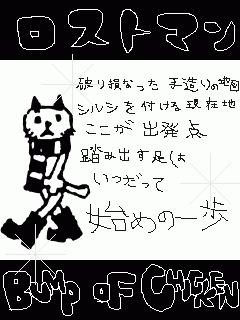 ロストマン
破り損なった 手造りの地図
シルシを付ける現在地
ここが 出発点
踏み出す足は
いつだって
始めの一歩
BUMP OF CHICKEN